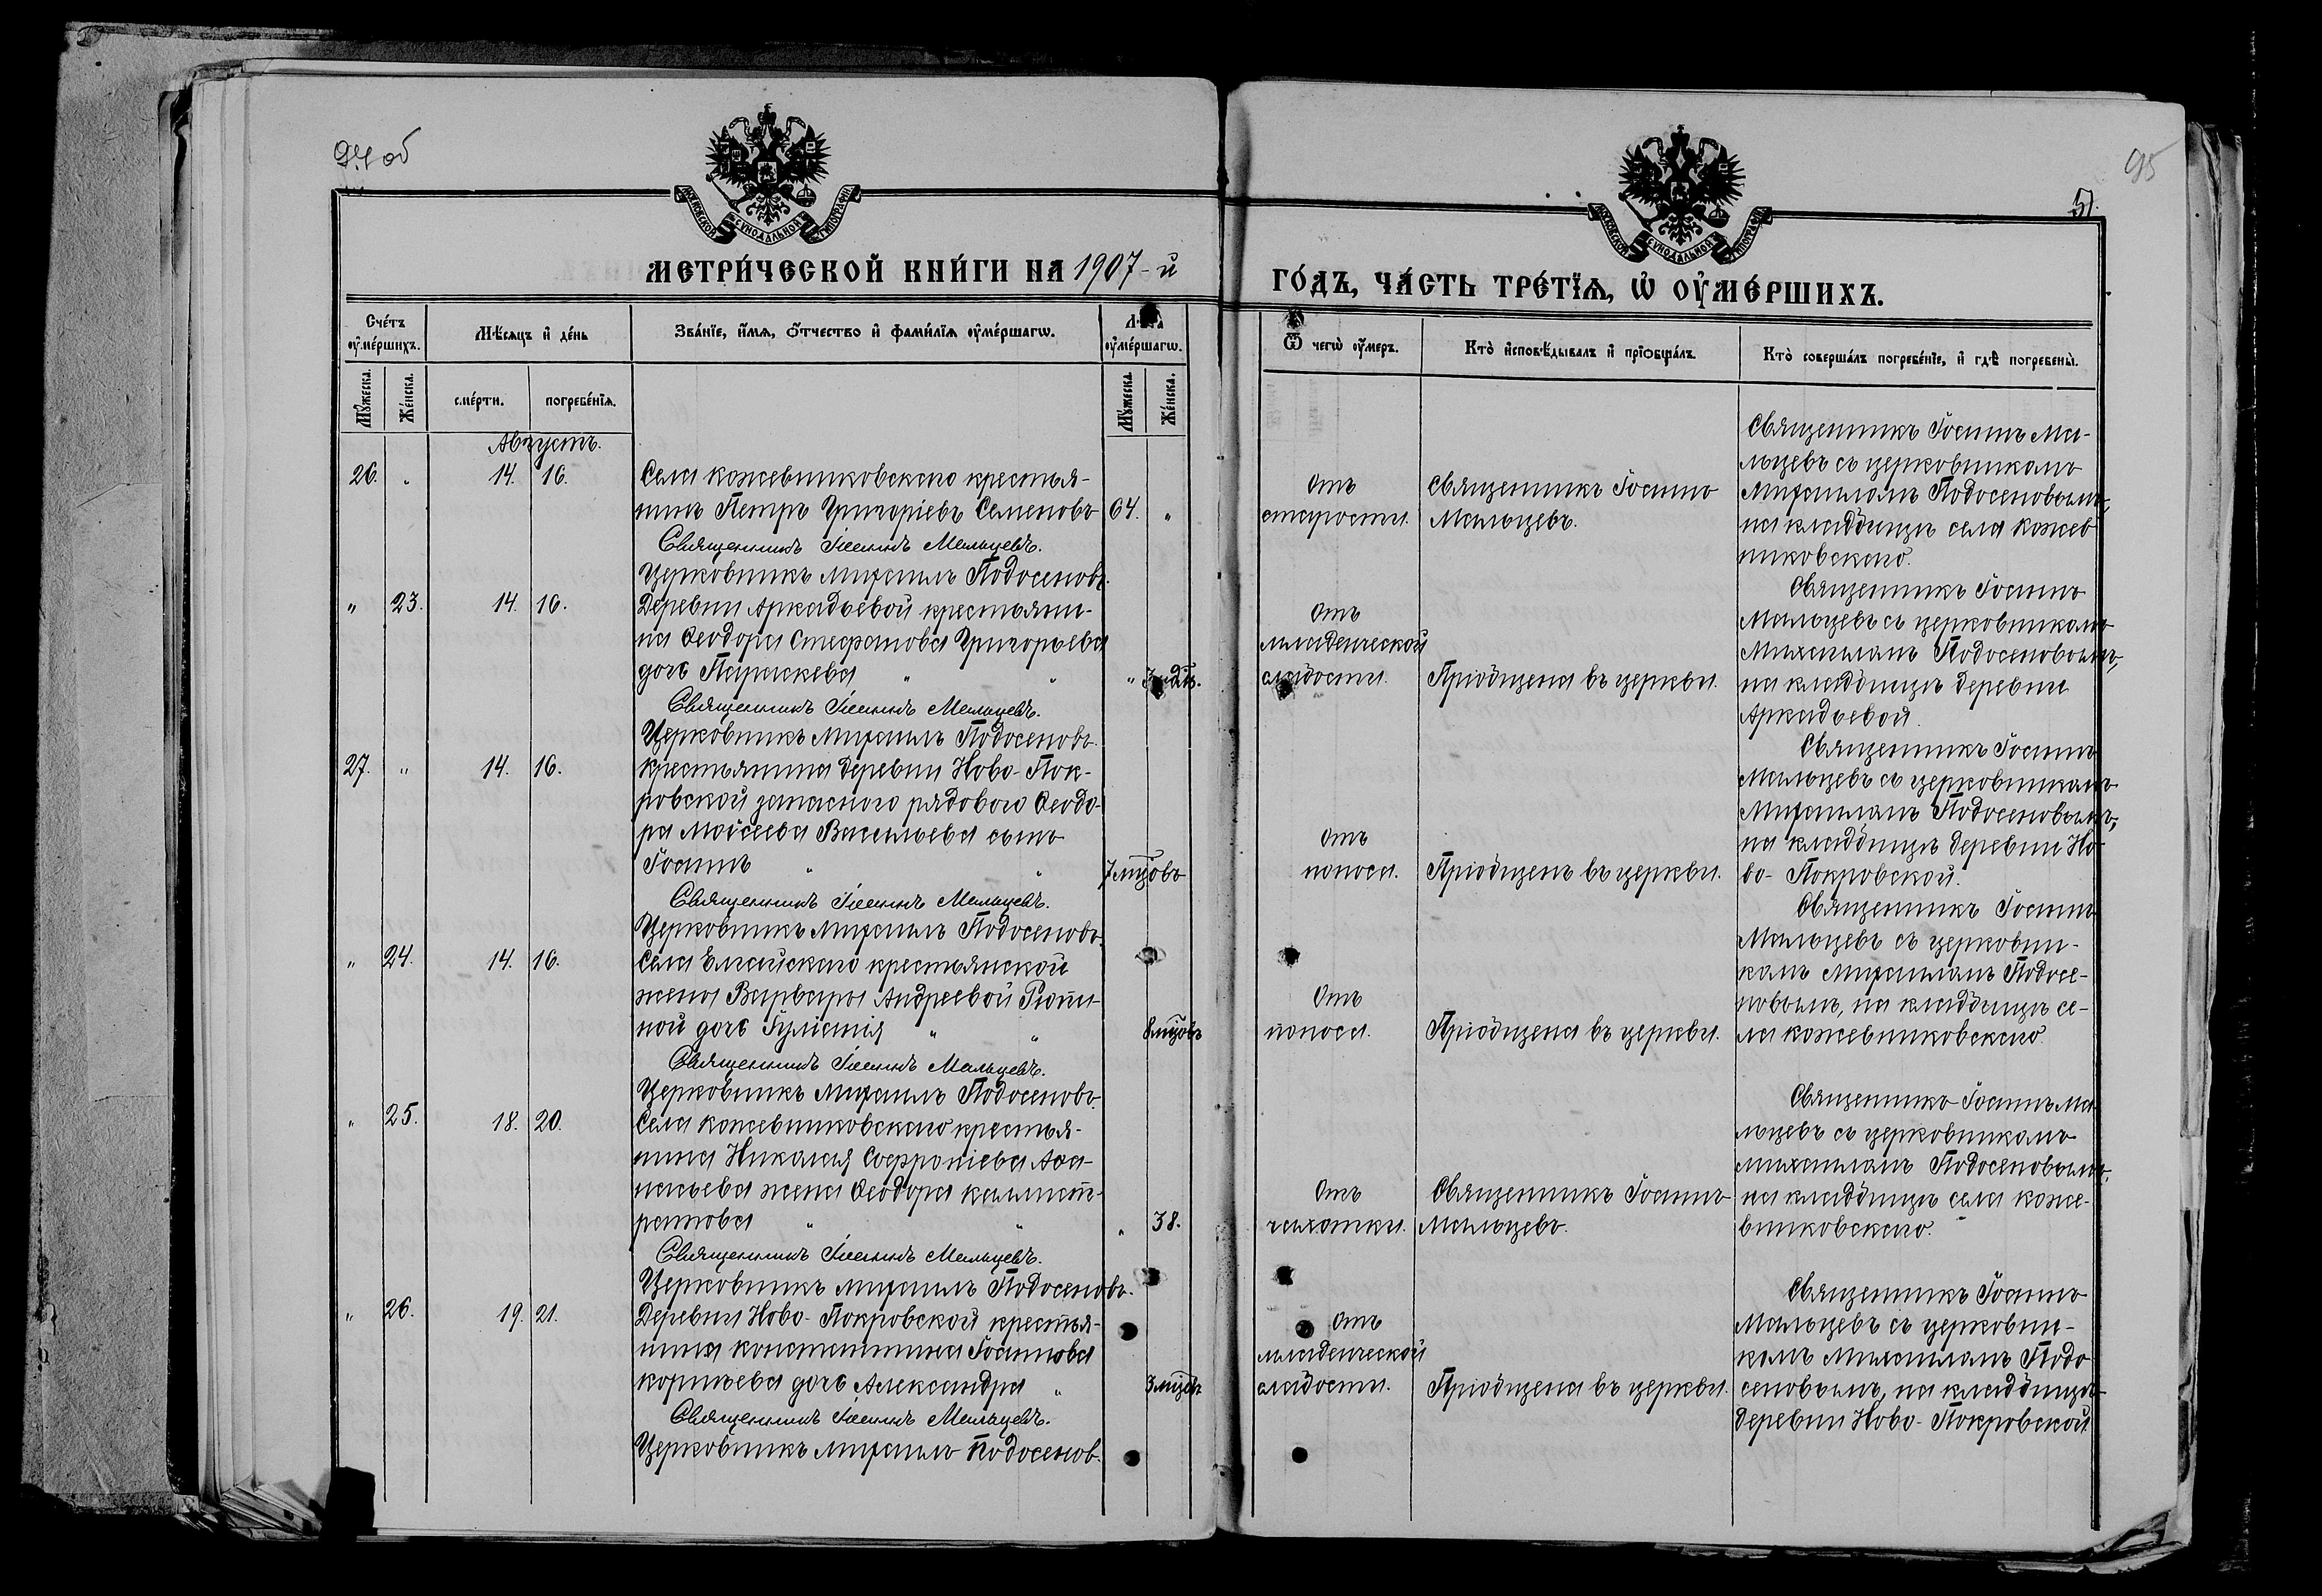 94 об
95
МОСКОВСКОЙ СУНОДАЛЬНОЙ ТИПОГРАФІИ
МОСКОВСКОЙ СУНОДАЛЬНОЙ ТИПОГРАФІИ
МЕТРИ́ЧЕСКОЙ КНИ́ГИ НА 1907-й
ГО́ДЪ, ЧА́СТЬ ТРЕ́ТЇѦ, Ѡ҆ ОУ҆МЕ́РШИХЪ.
Сче́тъ оу҆ме́ршихъ.
Мѣ́сяцъ и҆ де́нь
Зва́нїе, и҆́мѧ, ѻ҆́тчество и҆ фами́лїѧ оу҆ме́ршагѡ.
Лѣ́та оу҆ме́ршагѡ.
Ѿ чегѡ̀ оу҆́меръ.
Кто̀ и҆сповѣ́дывалъ и҆ прїѡбща́лъ.
Кто̀ соверша́лъ погребе́нїе, и҆ гдѣ̀ погребены̀.
Мꙋ́жеска.
Же́нска.
сме́рти.
погребе́нїѧ.
Мꙋ́жеска.
Же́нска.
Августъ.
26. " 14. 16.
Села Кожевниковскаго крестья-
нинъ Петръ Григоріевъ Семеновъ 64. "
Священникъ Іоаннъ Мальцевъ.
Церковникъ Михаилъ Подосеновъ.
Отъ
старости.
Священникъ Іоаннъ
Мальцевъ.
Священникъ Іоаннъ Ма-
льцевъ съ церковникамъ
Михаиламъ Подосеновымъ,
на кладбищѣ села Кожев
никовскаго.
" 23. 14. 16.
Деревни Аркадьевой крестьяни-
на Ѳеодора Стефанова Григорьева
дочь Параскева " "
" 3 нѣд.
Священникъ Іоаннъ Мальцевъ.
Церковникъ Михаилъ Подосеновъ.
Отъ
младенческой
слабости.
Пріобщена въ церкви.
Священникъ Іоаннъ
Мальцевъ съ церковникамъ
Михаиламъ Подосеновымъ,
на кладбищѣ деревни
Аркадьевой.
27. " 14. 16.
Крестьянина деревни Ново-Пок-
ровской запаснаго рядового Ѳеодо-
ра Моісеева Васильева сынъ
Іоаннъ " "
7 мцовъ
Священникъ Іоаннъ Мальцевъ.
Церковникъ Михаилъ Подосеновъ.
Отъ
поноса.
Пріобщенъ въ церкви.
Священникъ Іоаннъ
Мальцевъ съ церковникамъ
Михаиламъ Подосеновымъ,
на кладбищѣ деревни Но-
во-Покровской.
" 24. 14. 16.
Села Елгайскаго крестьянской
жены Варвары Андреевой
ной дочь Іуліанія " "
8 мцовъ
Священникъ Іоаннъ Мальцевъ.
Церковникъ Михаилъ Подосеновъ.
Отъ
поноса.
Пріобщена въ церкви.
Священникъ Іоаннъ
Мальцевъ съ церковни-
камъ Михаиламъ Подосе-
новымъ, на кладбищѣ се-
ла Кожевниковскаго.
" 25. 18. 20.
Села Кожевниковскаго крестья-
нина Николая Софроніева Аѳа-
насьева жена Ѳеодора Каллист-
ратова " "
" 38.
Священникъ Іоаннъ Мальцевъ.
Церковникъ Михаилъ Подосеновъ.
Отъ
чахотки.
Священникъ Іоаннъ
Мальцевъ.
Священникъ Іоаннъ Ма-
льцевъ съ церковникамъ
Михаиламъ Подосеновымъ,
на кладбищѣ села Коже-
вниковскаго.
" 26. 19. 21.
Деревни Ново-Покровской крестья-
нина Константина Іоаннова
Корнѣева дочь Александра "
3 мцевъ
Священникъ Іоаннъ Мальцевъ.
Церковникъ Михаилъ Подосенов.
Отъ
младенческой
слабости.
Пріобщена въ церкви.
Священникъ Іоаннъ
Мальцевъ съ церковни-
камъ Михаиламъ Подо
сеновымъ, на кладбищѣ
деревни Ново-Покровской.